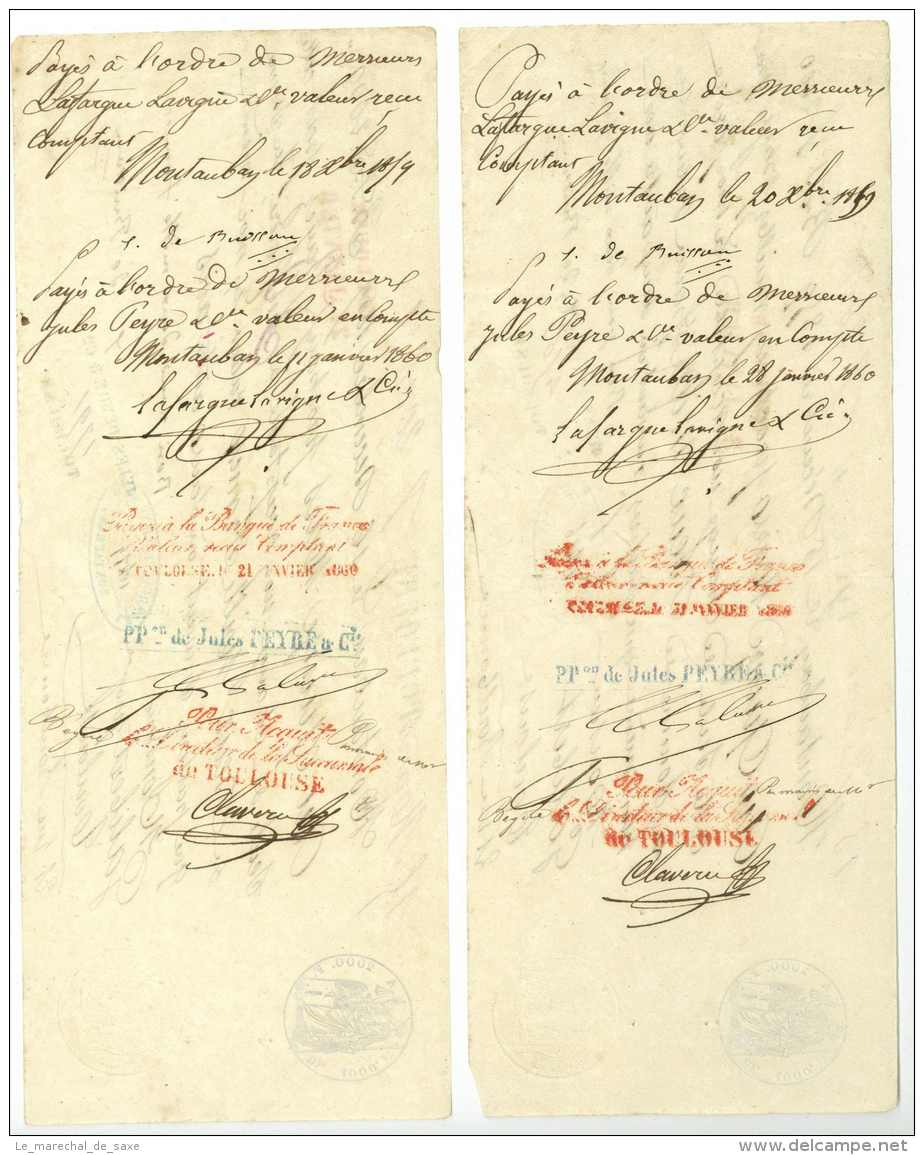 Payés à l'ordre de Messieurs
Lafargue Lavigne & Cie valeur reçu
Comptant
Montauban le 18 Xbre 1859
S. de Buisson
Payés à l'ordre de Messieurs
Jules Peyre & Cie valeur en Compte
Montauban le 11 janvier 1860
Lafargue Lavigne & Cie
à la Banque de France
Valeur reçue Comptant
TOULOUSE, le 21 JANVIER 1860
PPon de Jules PEYRE & Cie
Pour Acquit
Le Directeur de la Succursale
de TOULOUSE
Claverie
2000.
Payés à l'ordre de Messieurs
Lafargue Lavigne & Cie valeur reçu
Comptant
Montauban le 20 Xbre 1859
S. de Buisson
Payés à l'ordre de Messieurs
Jules Peyre & Cie valeur en Compte
Montauban le 28 janvier 1860
Lafargue Lavigne & Cie
à la Banque de France
Valeur reçue Comptant
TOULOUSE, le 31 JANVIER 1860
PPon de Jules PEYRE & Cie
Pour Acquit
Le Directeur de la Succursale
de TOULOUSE
Claverie
2000.
Le_marechal_de_saxe
www.delcampe.net